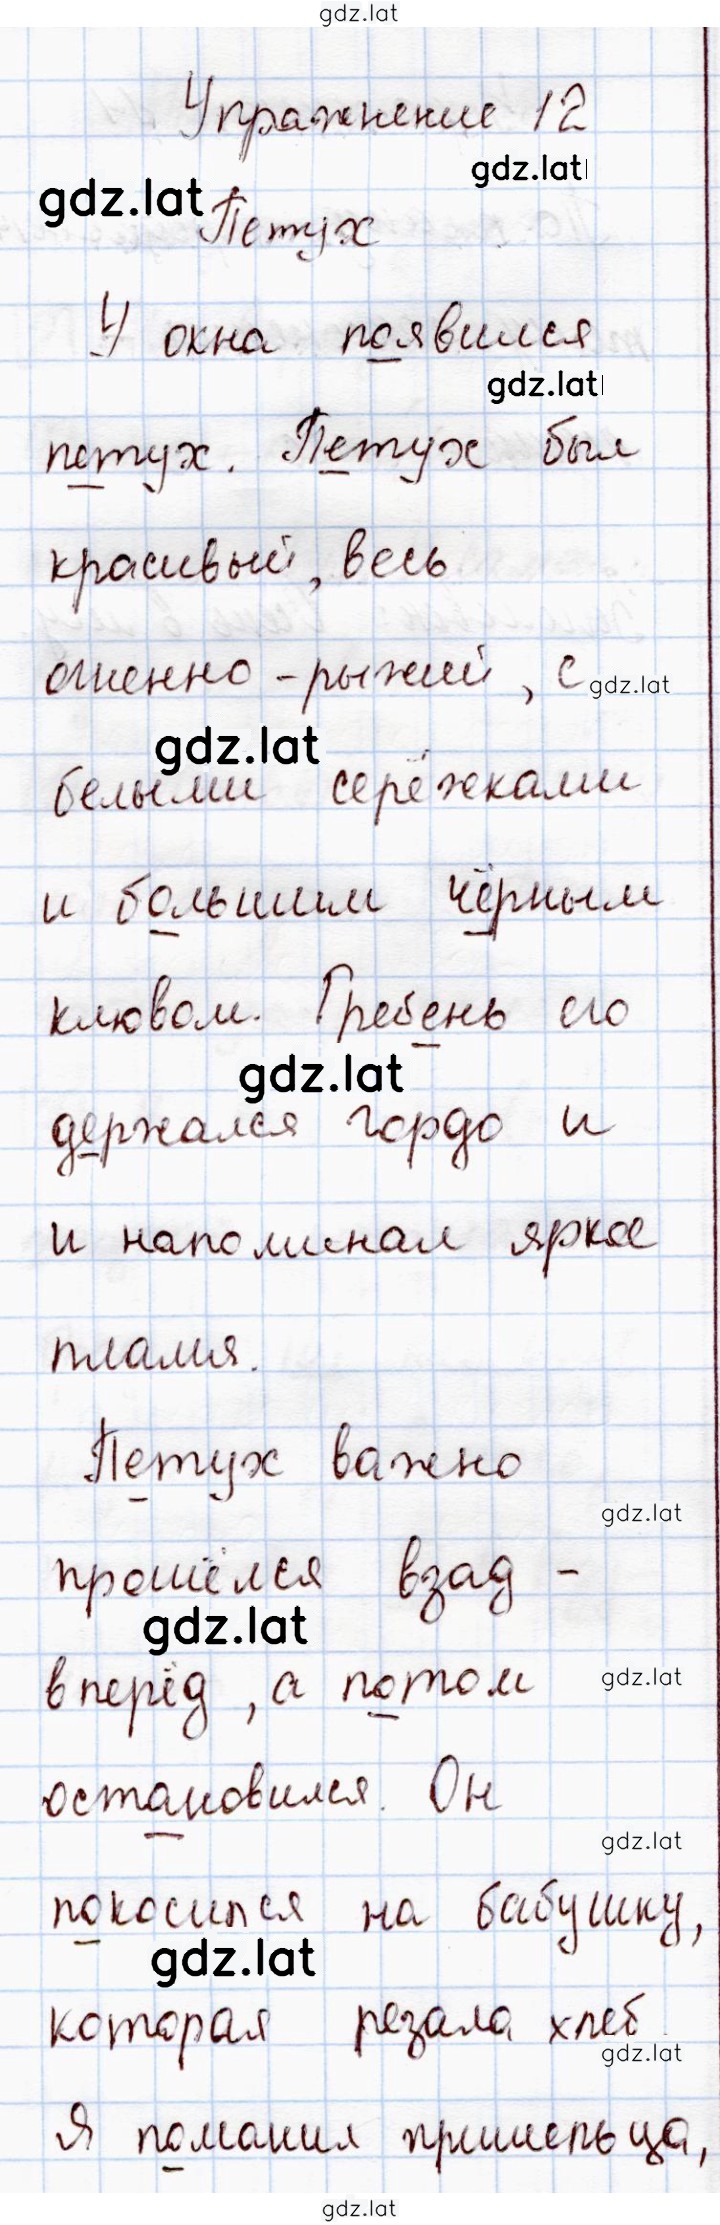 gdz.lat
Упражнение 12
gdz.lat
gdz.lat
Петух
У окна появился
gdz.lat
петух. Петух был
красивый, весь
огненно-рыжий, с
gdz.lat
gdz.lat
белыми серёжками
и большим чёрным
клювом. Гребень его
gdz.lat
держался гордо и
и напоминал яркое
пламя.
Петух важно
gdz.lat
прошёлся взад-
gdz.lat
вперёд, а потом
gdz.lat
остановился. Он
gdz.lat
покосился на бабушку,
gdz.lat
которая резала хлеб.
gdz.lat
Я поманил пришельца,
gdz.lat